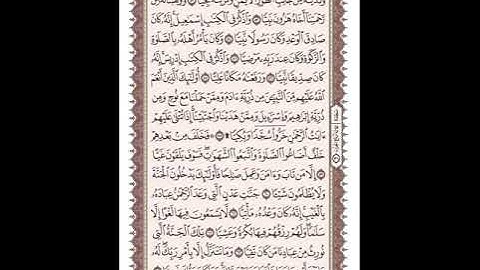 رَّحْمَتِنَآ أَخَاهُ هَٰرُونَ نَبِيًّا وَٱذْكُرْ فِى ٱلْكِتَٰبِ إِسْمَٰعِيلَ إِنَّهُۥ كَانَ
صَادِقَ ٱلْوَعْدِ وَكَانَ رَسُولًا نَّبِيًّا وَكَانَ يَأْمُرُ أَهْلَهُۥ بِٱلصَّلَوٰةِ
وَٱلزَّكَوٰةِ وَكَانَ عِندَ رَبِّهِۦ مَرْضِيًّا وَٱذْكُرْ فِى ٱلْكِتَٰبِ إِدْرِيسَ إِنَّهُۥ
كَانَ صِدِّيقًا نَّبِيًّا وَرَفَعْنَٰهُ مَكَانًا عَلِيًّا أُو۟لَٰٓئِكَ ٱلَّذِينَ أَنْعَمَ
ٱللَّهُ عَلَيْهِم مِّنَ ٱلنَّبِيِّۦنَ مِن ذُرِّيَّةِ ءَادَمَ وَمِمَّنْ حَمَلْنَا مَعَ نُوحٍ وَمِن
ذُرِّيَّةِ إِبْرَٰهِيمَ وَإِسْرَٰٓءِيلَ وَمِمَّنْ هَدَيْنَا وَٱجْتَبَيْنَآ إِذَا تُتْلَىٰ عَلَيْهِمْ
ءَايَٰتُ ٱلرَّحْمَٰنِ خَرُّوا۟ سُجَّدًا وَبُكِيًّا ۩ فَخَلَفَ مِنۢ بَعْدِهِمْ
خَلْفٌ أَضَاعُوا۟ ٱلصَّلَوٰةَ وَٱتَّبَعُوا۟ ٱلشَّهَوَٰتِ فَسَوْفَ يَلْقَوْنَ غَيًّا
إِلَّا مَن تَابَ وَءَامَنَ وَعَمِلَ صَٰلِحًا فَأُو۟لَٰٓئِكَ يَدْخُلُونَ ٱلْجَنَّةَ
وَلَا يُظْلَمُونَ شَيْـًٔا جَنَّٰتِ عَدْنٍ ٱلَّتِى وَعَدَ ٱلرَّحْمَٰنُ عِبَادَهُۥ
بِٱلْغَيْبِ إِنَّهُۥ كَانَ وَعْدُهُۥ مَأْتِيًّا لَّا يَسْمَعُونَ فِيهَا لَغْوًا إِلَّا
سَلَٰمًا وَلَهُمْ رِزْقُهُمْ فِيهَا بُكْرَةً وَعَشِيًّا تِلْكَ ٱلْجَنَّةُ ٱلَّتِى
نُورِثُ مِنْ عِبَادِنَا مَن كَانَ تَقِيًّا وَمَا نَتَنَزَّلُ إِلَّا بِأَمْرِ رَبِّكَ لَهُۥ